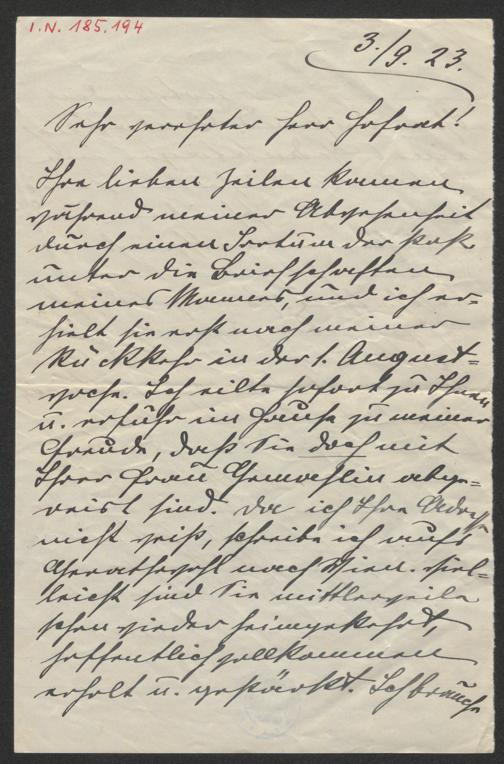 I.N. 185.194
3./9. 23.
Sehr verehrter Herr Hofrat!
Ihre lieben Zeilen kamen
während meiner Abwesenheit
durch einen Irrtum der Post
unter die Briefschaften
meines Mannes, und ich er-
hielt sie erst nach meiner
Rückkehr in der 1. August-
woche. Ich eilte sofort zu Ihnen
u. erfuhr im Hause zu meiner
Freude, daß Sie doch mit
Ihrer Frau Gemahlin abge-
reist sind. Da ich Ihre Adresse
nicht weiß, schreibe ich aufs
Geratewohl nach Wien. Viel-
leicht sind Sie mittlerweile
schon wieder heimgekehrt,
hoffentlich vollkommen
erholt u. gestärkt. Ich brauche